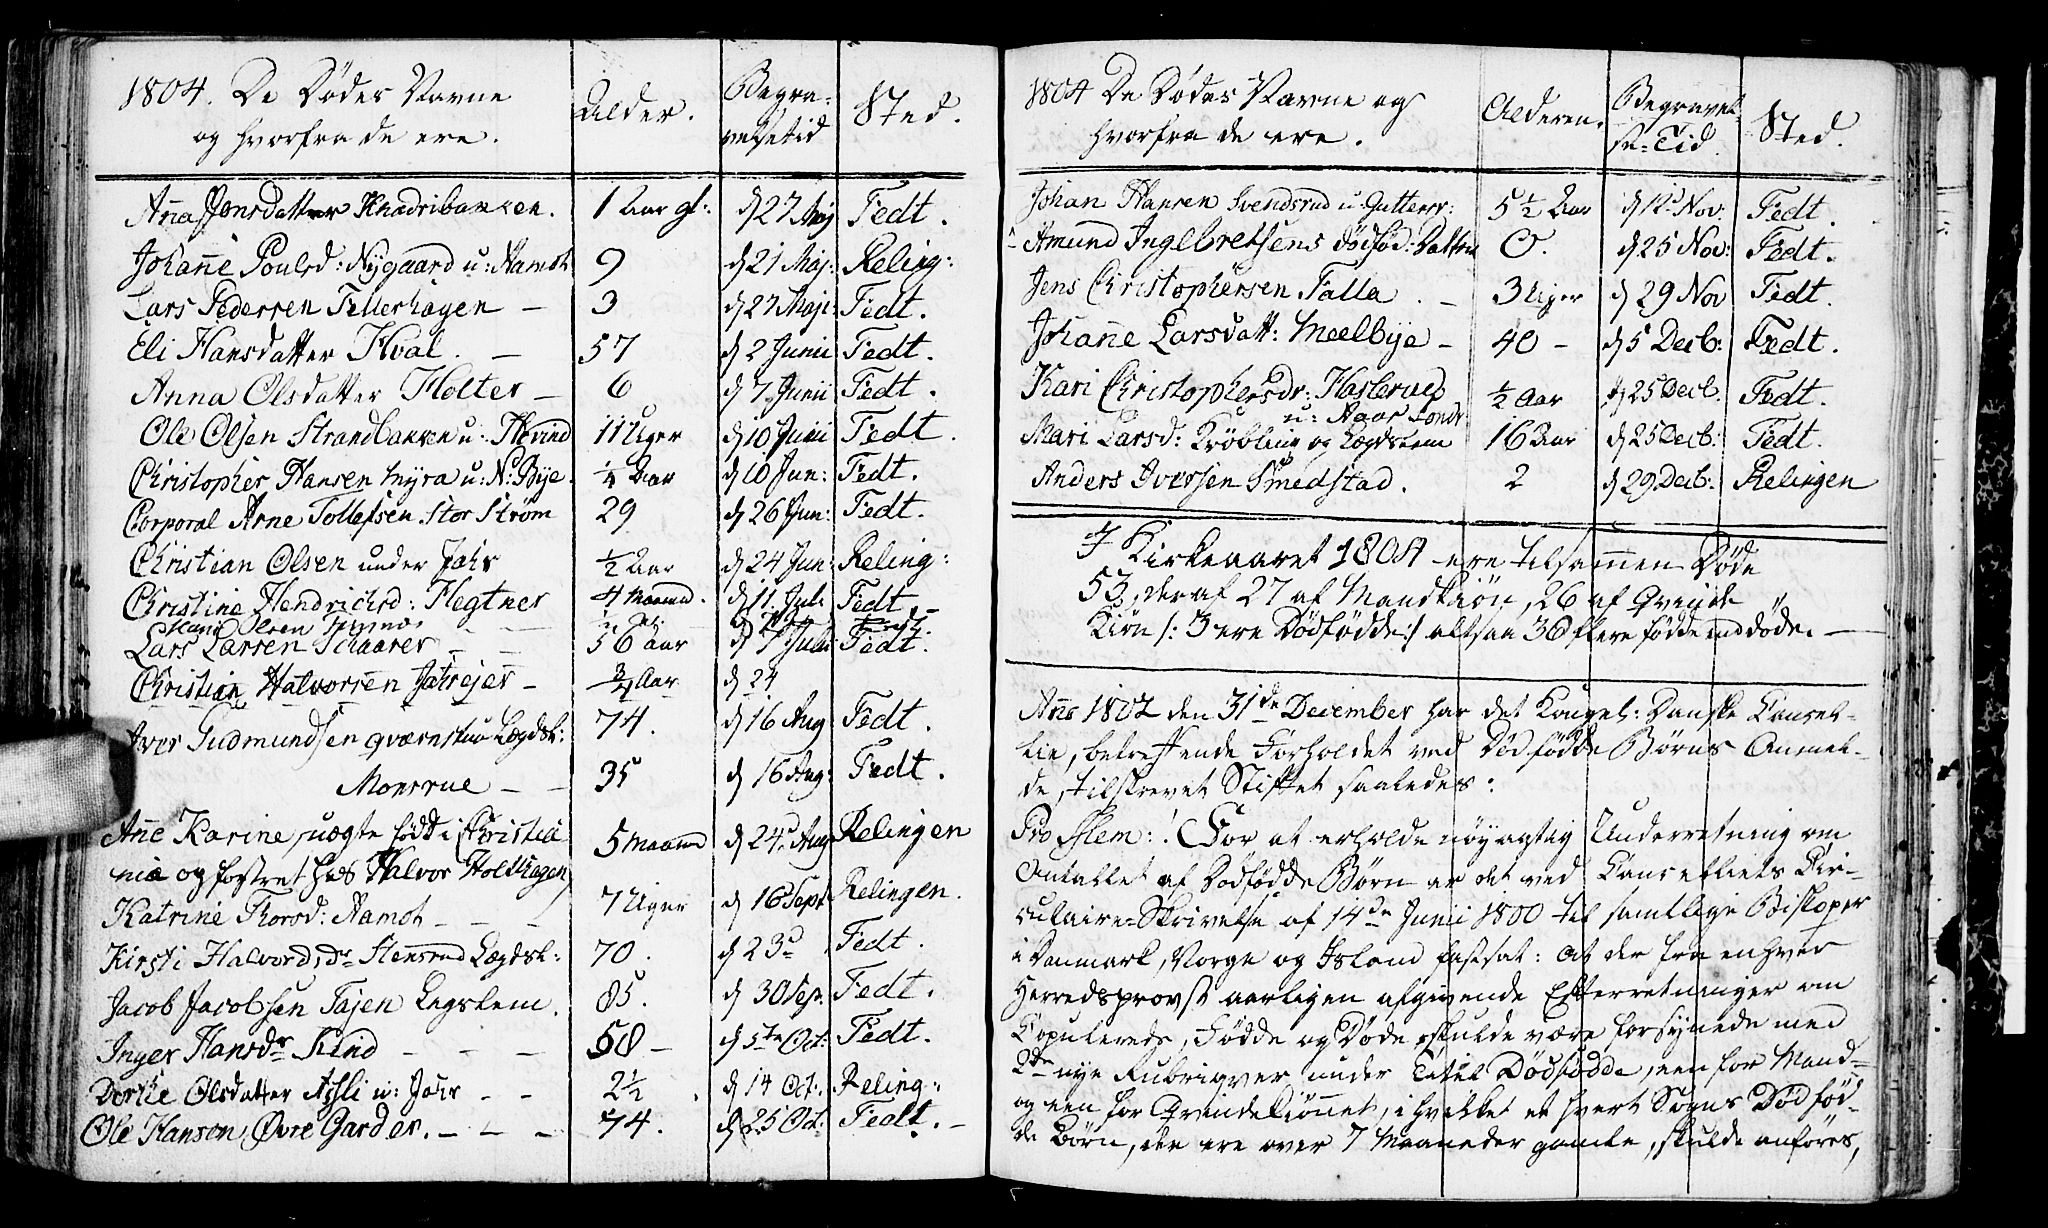 1804. De Dødes Navne
og hvorfra de ere.
Alder.
Begra-
velsetid
Sted.
Aña Jonsdatter Knadribakken. 1 Aar gl: d 27 Maj Fedt.
Johañe Poulsd: Nygaard u: Aamot 9 d 21 Maj: Reling:
Lars Pedersen Tellerhagen – 3 d 27 Maji: Fedt.
Eli Hansdatter Hval. – 57 d 2 Junii Fedt.
Anna Olsdatter Holter – 6 d 7 Junii Fedt.
Ole Olsen Strandbakken u: Hvind 11 Uger d 10 Junii Fedt.
Christopher Hansen Myra u: N: Bye. ¼ Aar d 10 Jun: Fedt.
Corporal Arne Tollefsen Stor Strøm 29 d 26 Jun: Fedt.
Christian Olsen under Jahr ½ Aar d 24 Jun: Reling:
Christine Hendrichsd: Hegtner 4 Maaned. d 11 Jul: Fedt
Hans Olsen
Lars Larsen Schaarer – – 56 Aar d 7 Julii Fedt.
Christian Halvorsen Jahrejer – ¾ Aar d 24
Iver Gudmundsen qværnstuo Lægdsl: 74. d 16 Aug Fedt.
Monsrue – – 35 d 16 Aug: Fedt.
Añe Karine, uægte født i Christia
nia og fostret hos Halvor Holthagen 5 Maaned d 24d Aug Relingen
Katrine Thorsd: Aamot – – – 7 Uger d 16 Sept Relingen.
Kirsti Halvordsdr Stensrud Lægdsl: 70. d 23d Fedt.
Jacob Jacobsen Tajen Legslem. 85. d 30 Sep. Fedt.
Inger Hansdr Kind – – – 58 – d 5te Oct: Fedt.
Dorthe Olsdatter Asli u: Jahr – – 2½ d 14 Oct: Reling:
Ole Hansen Øvre Garder. – – – 74. d 25 Oct: Fedt. –
1804 De Dødes Navne og
hvorfra de ere.
Alderen.
Begravel-
se-Tid.
Sted.
Johan Hansen Svendsrud u: Gutterer: 5½ Aar d 12 Nov: Fedt.
Amund Ingebretsens dødfød: Datter 0. d 25 Nov: Fedt.
Jens Christophersen Falla. – 3 Uger d 29 Nov Fedt.
Johañe Larsdatt: Meelbye – 40 – d 5 Decb: Fedt.
Kari Christophersdr: Haslerud ½ Aar d 25 Decb. Fedt.
u: Aaas
Mari Larsd: Krøbling og Lægdslem 16 Aar d 25 Decb: Fedt.
Anders Iversen Smedstad. 2 d 29 Decb: Relingen
I Kirkeaaret 1804 ere tilsam̃en Døde
53, deraf 27 af Mandkiøn, 26 af Qvinde
Kiøn /: 3 ere Dødfødde :/ altsaa 36 flere fødde end døde. –
Año 1802 den 31de December har det Kongel: Danske Cancel-
lie, betreffende Forholdet ved Dødfødde Børns Anmel-
de, tilskrevet Stiftet saaledes:
Pro Mem:! For at erholde nøyagtig Underretning om
Antallet af Dødfødde Børn er det ved Cancelliets Cir-
culaire-Skrivelse af 14de Junii 1800 til samtlige Biskoper
i Danmark, Norge og Island fastsat: at der fra enhver
Herredsprovst aarligen afgivende Efterretninger om
Copulerede, Fødde og Døde, skulde være forsynede med
2de nye Rubriqver under Titel Dødfødde, een for Mand-
og een for Qvindekiønnet, i hvilket et hvert Sogns Dødfød-
de Børn, der ere over 7 Maaneder gamle, skulde anføres,